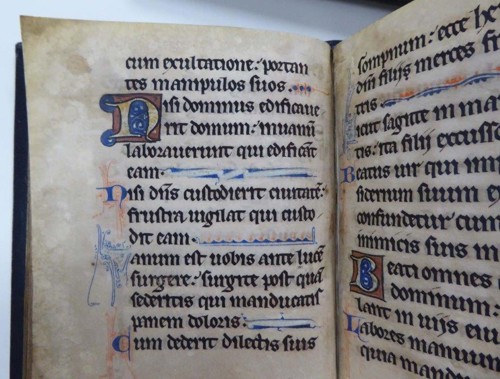 cum exultatione: portan
tes manipulos suos.
Nisi dominus edificaue
rit domum: inuanū
laborauerunt qui edificāt
eam.
Nisi dn̄s custodierit ciuitatē:
frustra uigilat qui custo
dit eam.
Uanum est uobis ante lucē
surgere: surgite post quā
sederitis qui manducatis
panem doloris.
Cum dederit dilectis suis
sompnum: ecce he
dn̄i filij merces fr
tris
icut sagitte in ma
tis: ita filij excuss
Beatus uir qui im
siderium suum e
confundetur cum
inimicis suis in
Beati omnes
dominum:
lant in uijs eiu
Labores manuum
quia mandu